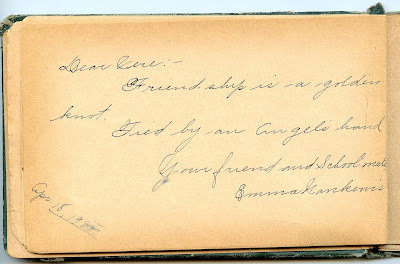 Dear Cere:-
Friendship is a golden
knot.
Tied by an Angels hand
Your friend and Schoolmate
Emma
Apr. 18, 19